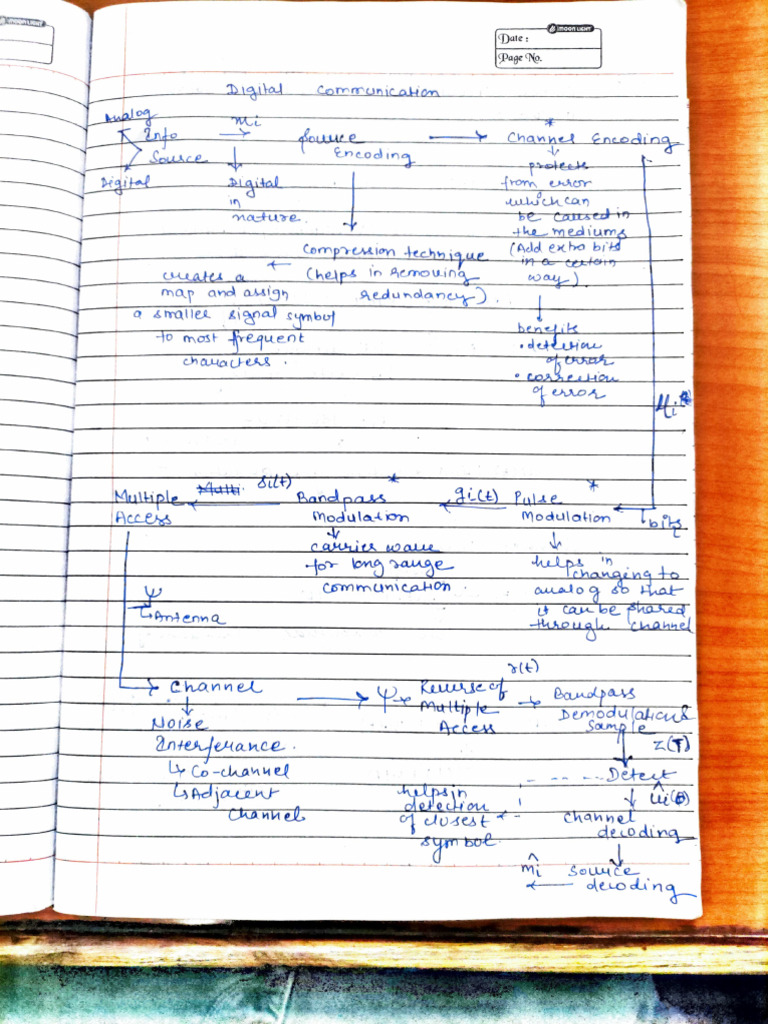 MOON LIGHT
MOON LIGHT
Date :
Page No.
Digital Communication
Analog
Info
Source
Digital
mi
Digital
in
nature
Source
Encoding
Compression technique
(helps in removing
redundancy).
creates a
map and assign
a smaller signal symbol
to most frequent
characters.
*
Channel Encoding
protects
from error
which can
be caused in
the mediums
(Add extra bits
in a certain
way).
benefits
• detection
of error
• correction
of error
bits
*
Pulse
Modulation
helps in
changing to
analog so that
it can be shared
through channel
gi(t)
*
Bandpass
Modulation
carrier wave
for long range
communication.
Multi si(t)
Multiple
Access
Antenna
Channel
Noise
Interferance.
Co-channel
Adjacent
Channel
Reverse of
Multiple
Access
r(t)
Bandpass
Demodulation &
Sample
z(T)
Detect
helps in
detection
of closest
symbol.
channel
decoding
source
decoding
m̂i